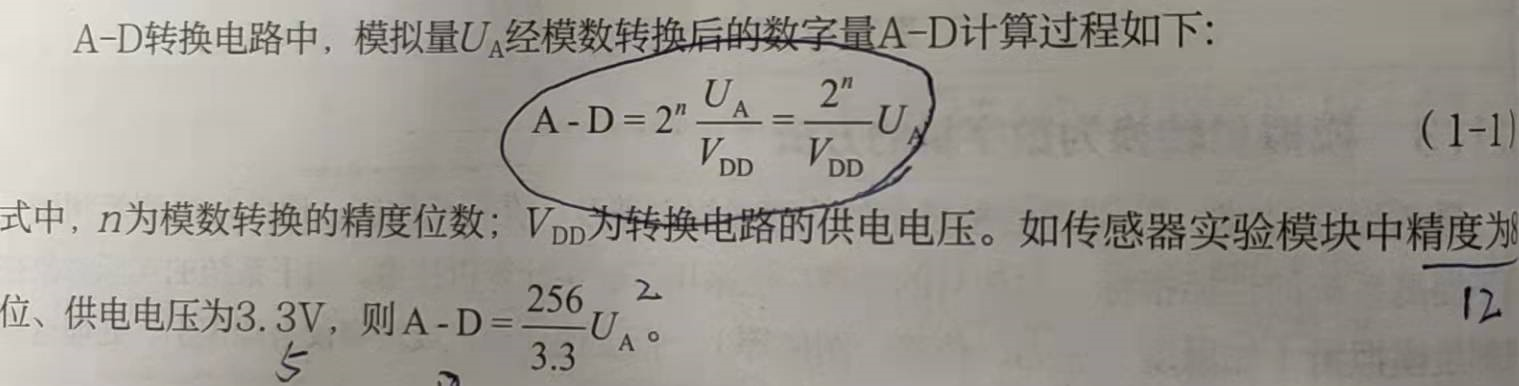 A-D转换电路中，模拟量U_A经模数转换后的数字量A-D计算过程如下：
A - D = 2^n U_A/V_DD = 2^n/V_DD U_A (1-1)
式中，n为模数转换的精度位数；V_DD为转换电路的供电电压。如传感器实验模块中精度为8
12
位、供电电压为3.3V，则 A - D = 256/3.3 U_A。
2
5